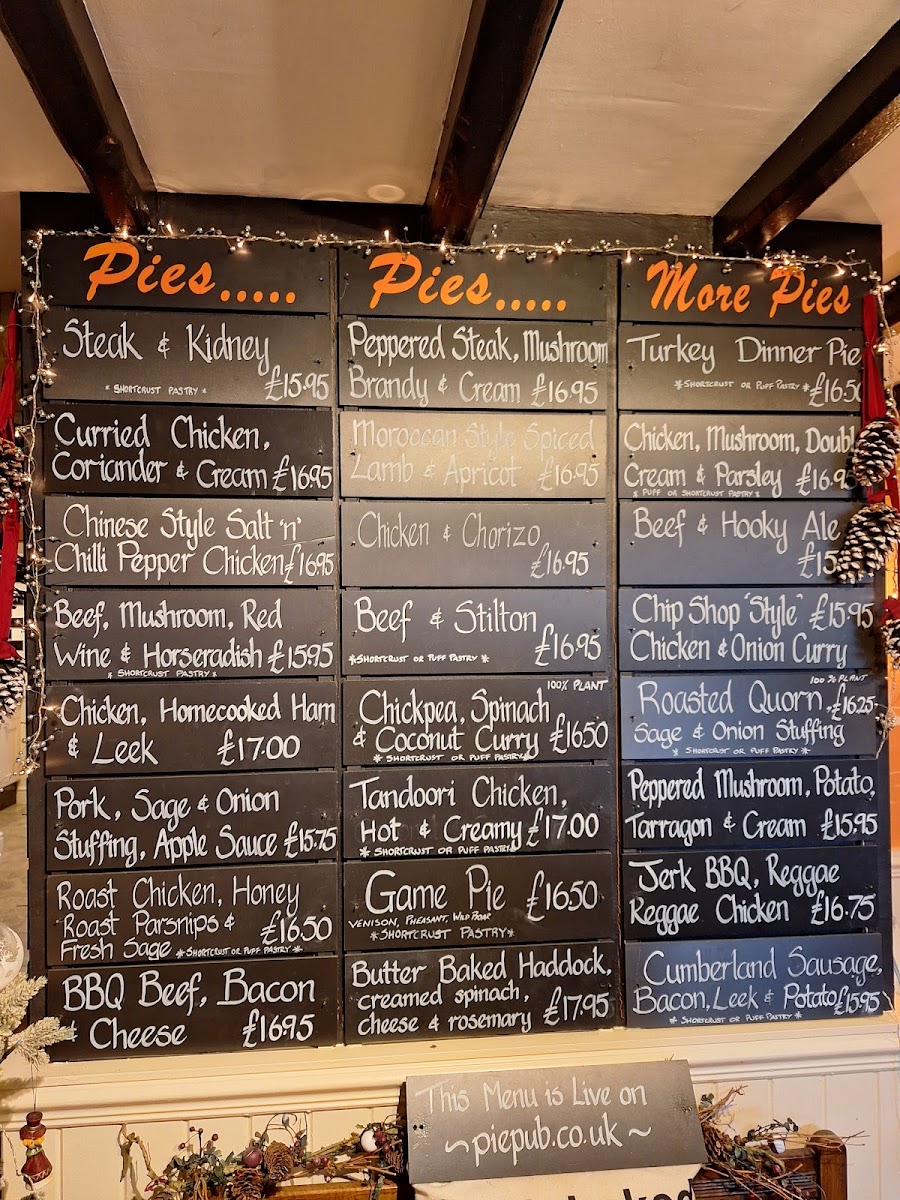 Pies.....
Steak & Kidney
* SHORTCRUST PASTRY * £15.95
Curried Chicken,
Coriander & Cream £16.95
Chinese Style Salt 'n'
Chilli Pepper Chicken £16.95
Beef, Mushroom, Red
Wine & Horseradish £15.95
* SHORTCRUST PASTRY *
Chicken, Homecooked Ham
& Leek £17.00
Pork, Sage & Onion
Stuffing, Apple Sauce £15.75
Roast Chicken, Honey
Roast Parsnips & £16.50
Fresh Sage *SHORTCRUST OR PUFF PASTRY*
BBQ Beef, Bacon
& Cheese £16.95
Pies.....
Peppered Steak, Mushroom
Brandy & Cream £16.95
Moroccan Style Spiced
Lamb & Apricot £16.95
Chicken & Chorizo
£16.95
Beef & Stilton
*SHORTCRUST OR PUFF PASTRY* £16.95
100% PLANT
Chickpea, Spinach
& Coconut Curry £16.50
* SHORTCRUST OR PUFF PASTRY
Tandoori Chicken,
Hot & Creamy £17.00
* SHORTCRUST OR PUFF PASTRY
Game Pie £16.50
VENISON, PHEASANT, WILD BOAR
*SHORTCRUST PASTRY*
Butter Baked Haddock,
creamed spinach,
cheese & rosemary £17.95
More Pies
Turkey Dinner Pie
*SHORTCRUST OR PUFF PASTRY* £16.50
Chicken, Mushroom, Doubl
Cream & Parsley £16.9
* PUFF OR SHORTCRUST PASTRY *
Beef & Hooky Ale
£15
Chip Shop 'Style' £15.95
Chicken & Onion Curry
100% PLANT
Roasted Quorn, £16.25
Sage & Onion Stuffing
* SHORTCRUST OR PUFF PASTRY *
Peppered Mushroom, Potato,
Tarragon & Cream £15.95
Jerk BBQ, Reggae
Reggae Chicken £16.75
Cumberland Sausage,
Bacon, Leek & Potato £15.95
* SHORTCRUST OR PUFF PASTRY *
This Menu is Live on
~piepub.co.uk~